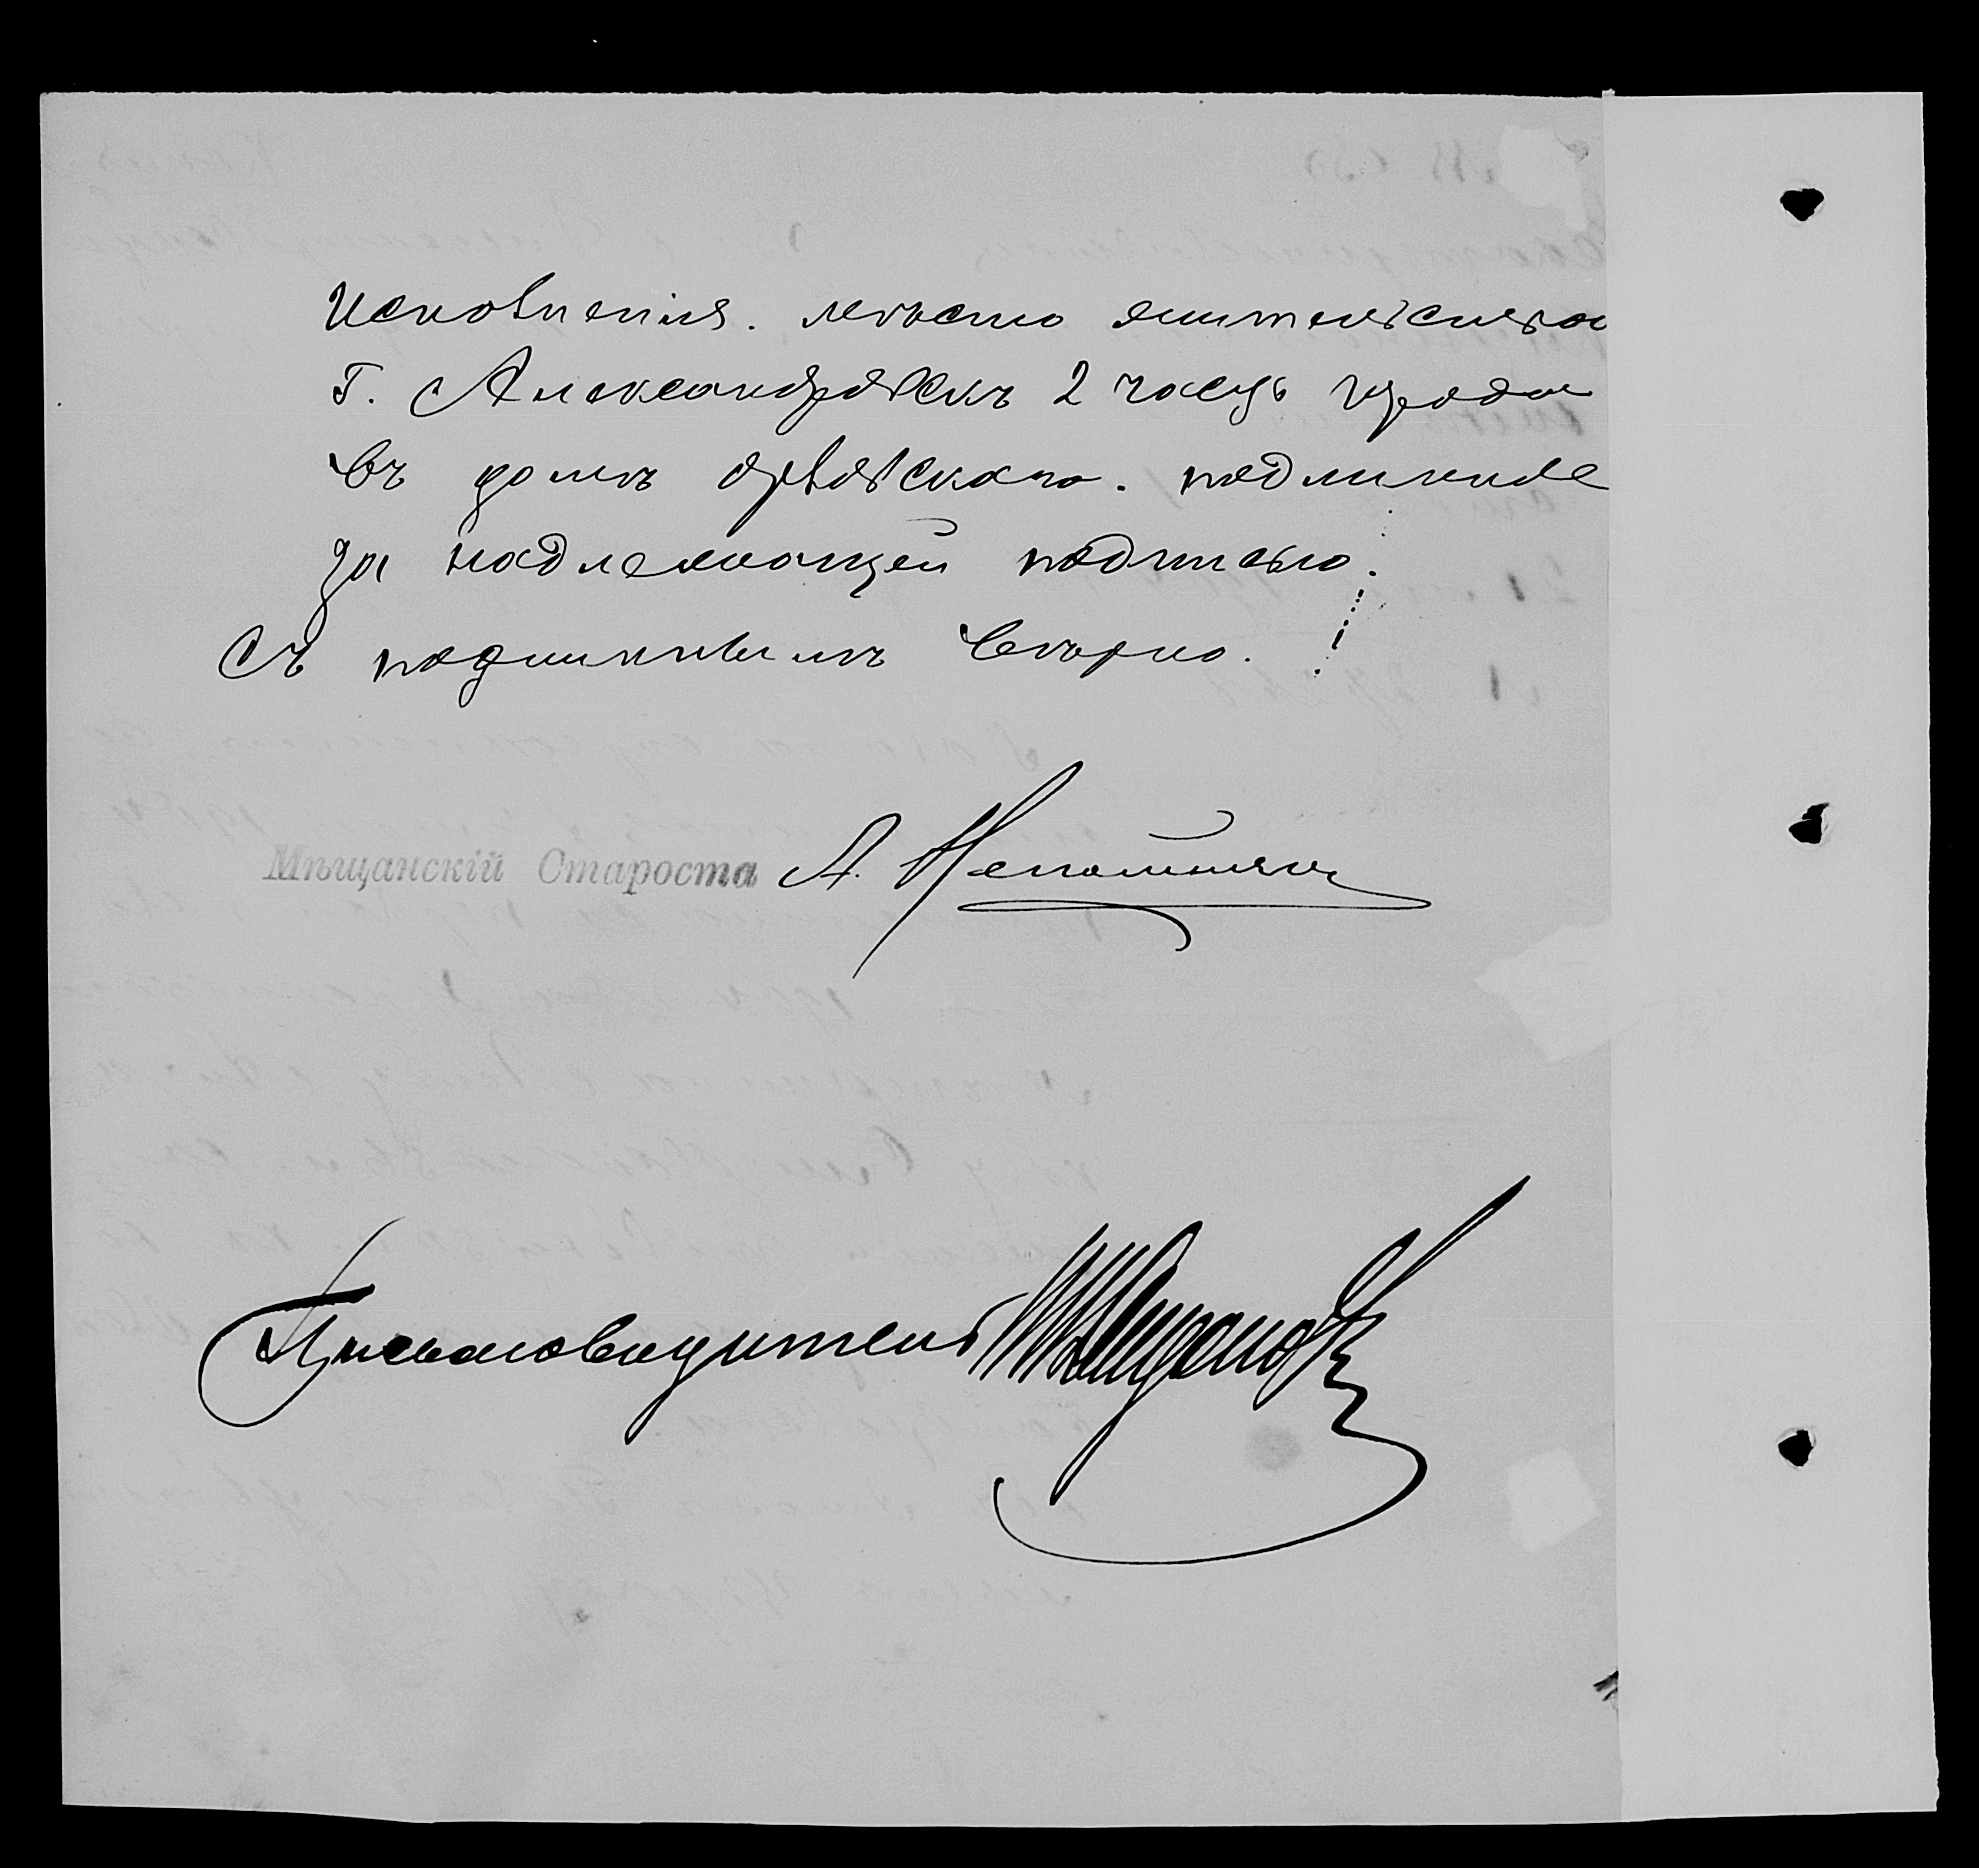 Исповненія. место жительства
г. Александровскъ 2 часть города
въ доме Орвовскаго. подлинное
за надлежащей подписью.
Съ подлиннымъ верно.
Мѣщанскій Староста А.
Письмоводитель